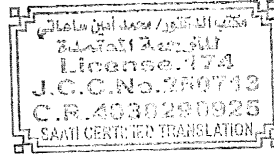 مكتب الدكتور/ محمد أمين ساعاتي
للترجمة المعتمدة
License.174
J.C.C.No.250713
C.R.4030290925
SAATI CERTIFIED TRANSLATION